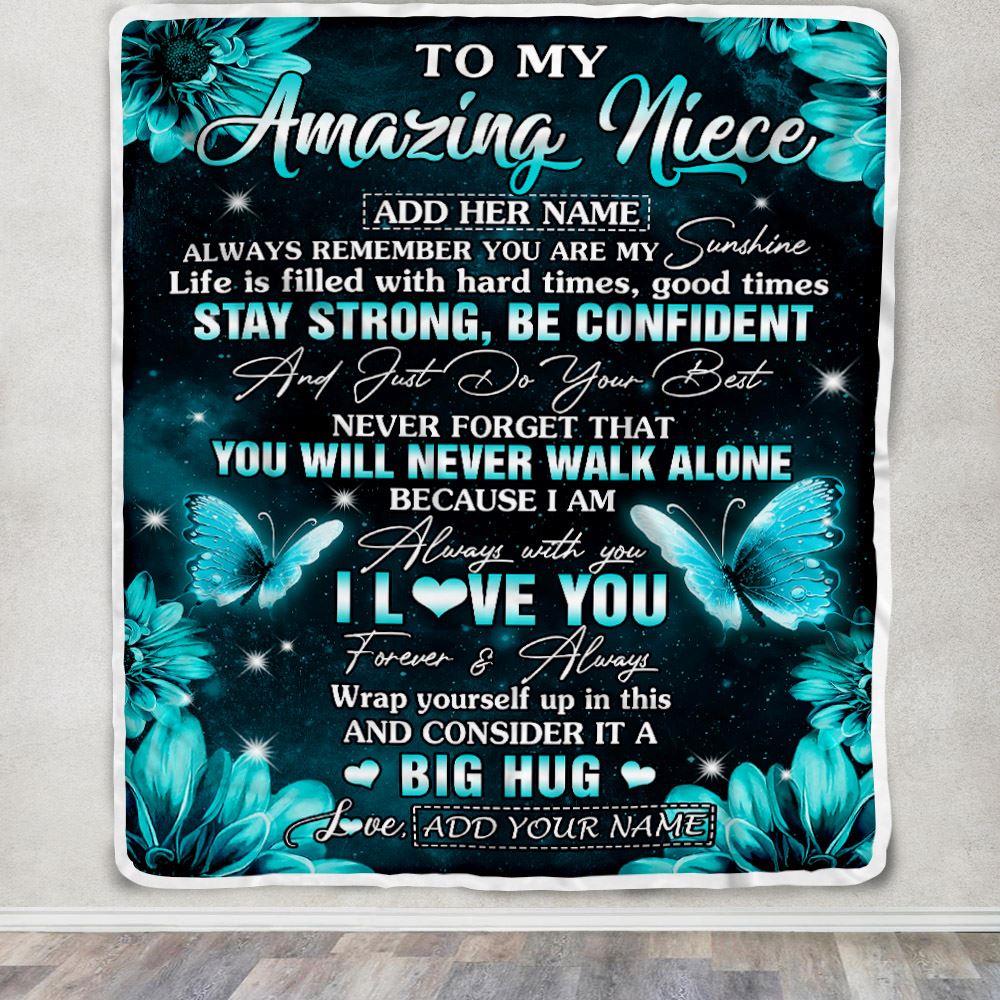 TO MY
Amazing Niece
ADD HER NAME
ALWAYS REMEMBER YOU ARE MY Sunshine
Life is filled with hard times, good times
STAY STRONG, BE CONFIDENT
And Just Do Your Best
NEVER FORGET THAT
YOU WILL NEVER WALK ALONE
BECAUSE I AM
Always with you
I LOVE YOU
Forever & Always
Wrap yourself up in this
AND CONSIDER IT A
BIG HUG
Love, ADD YOUR NAME